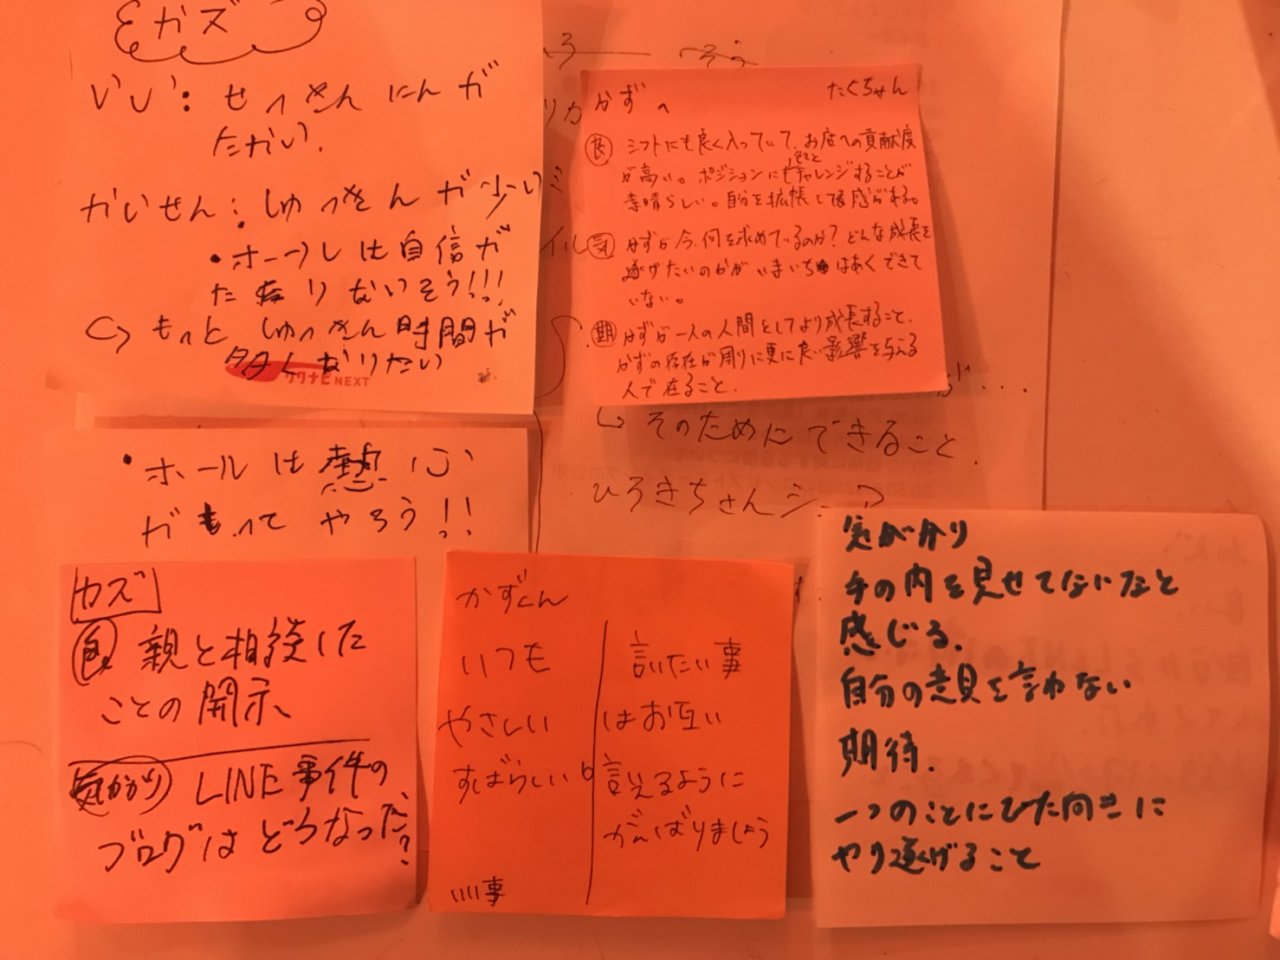 カズ
いい: せっきゃくにんが
たかい.
かいせん: しゅっきんが少ない
・ホールは自信が
たりないそう!!!
↪ もっと しゅっきん時間が
多くなりたい
リクナビNEXT
・ホールは熱心
がもってやろう!!
そう
かずへ たくちゃん
良 シフトにも良く入っていて、お店への貢献度
が高い。ポジションにも色々とチャレンジすることが
素晴らしい。自分を拡張して成感がある。
気 かずが今、何を求めているのか?どんな成長を
遂げたいのかがいまいちはあくできて
いない。
期 かずが一人の人間としてより成長すること、
かずの存在が周りに更に良い影響を与える
人で在ること.
↳ そのためにできること.
ひろきちゃん
カズ
良 親と相談した
ことの開示、
気がかり LINE事件の
ブログはどうなった?
かずくん
いつも
やさしい
すばらしい
いい事
言いたい事
はお互い
言えるように
がんばりましょう
気がかり
手の内を見せてないなと
感じる.
自分の意見を言わない
期待.
一つのことにひた向きに
やり遂げること